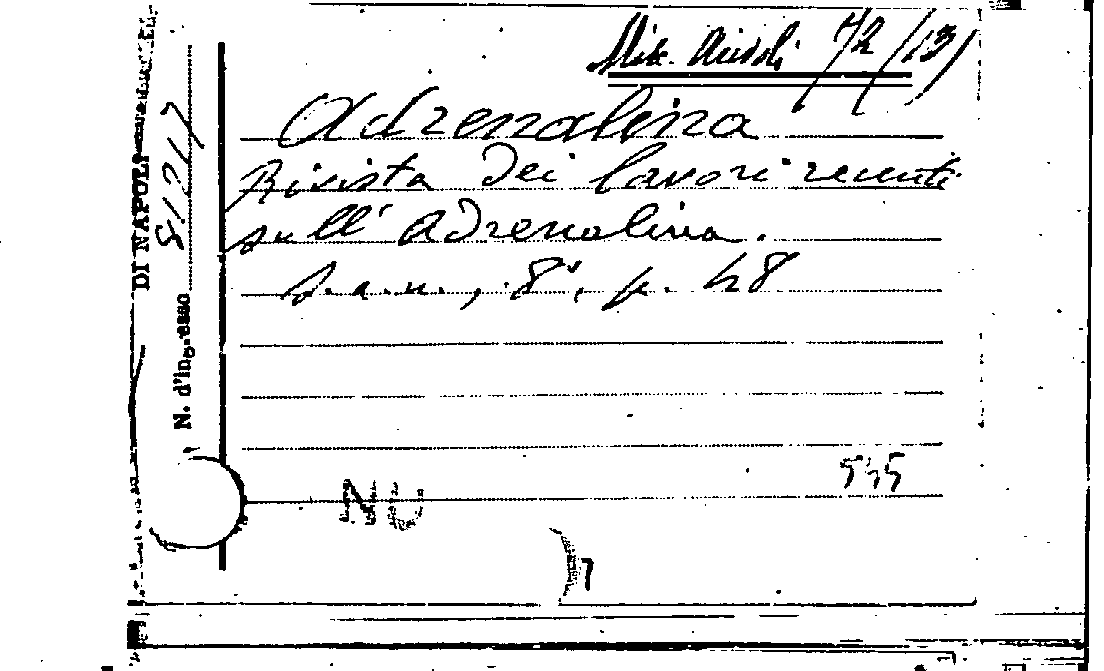 Misc. Rivoli 72/(13)
Adrenalina
Rivista dei lavori recenti
sull' adrenalina.
S.a.n., 8°, p. 48
DI NAPOLI
N. d'ingresso 81217
535
NC